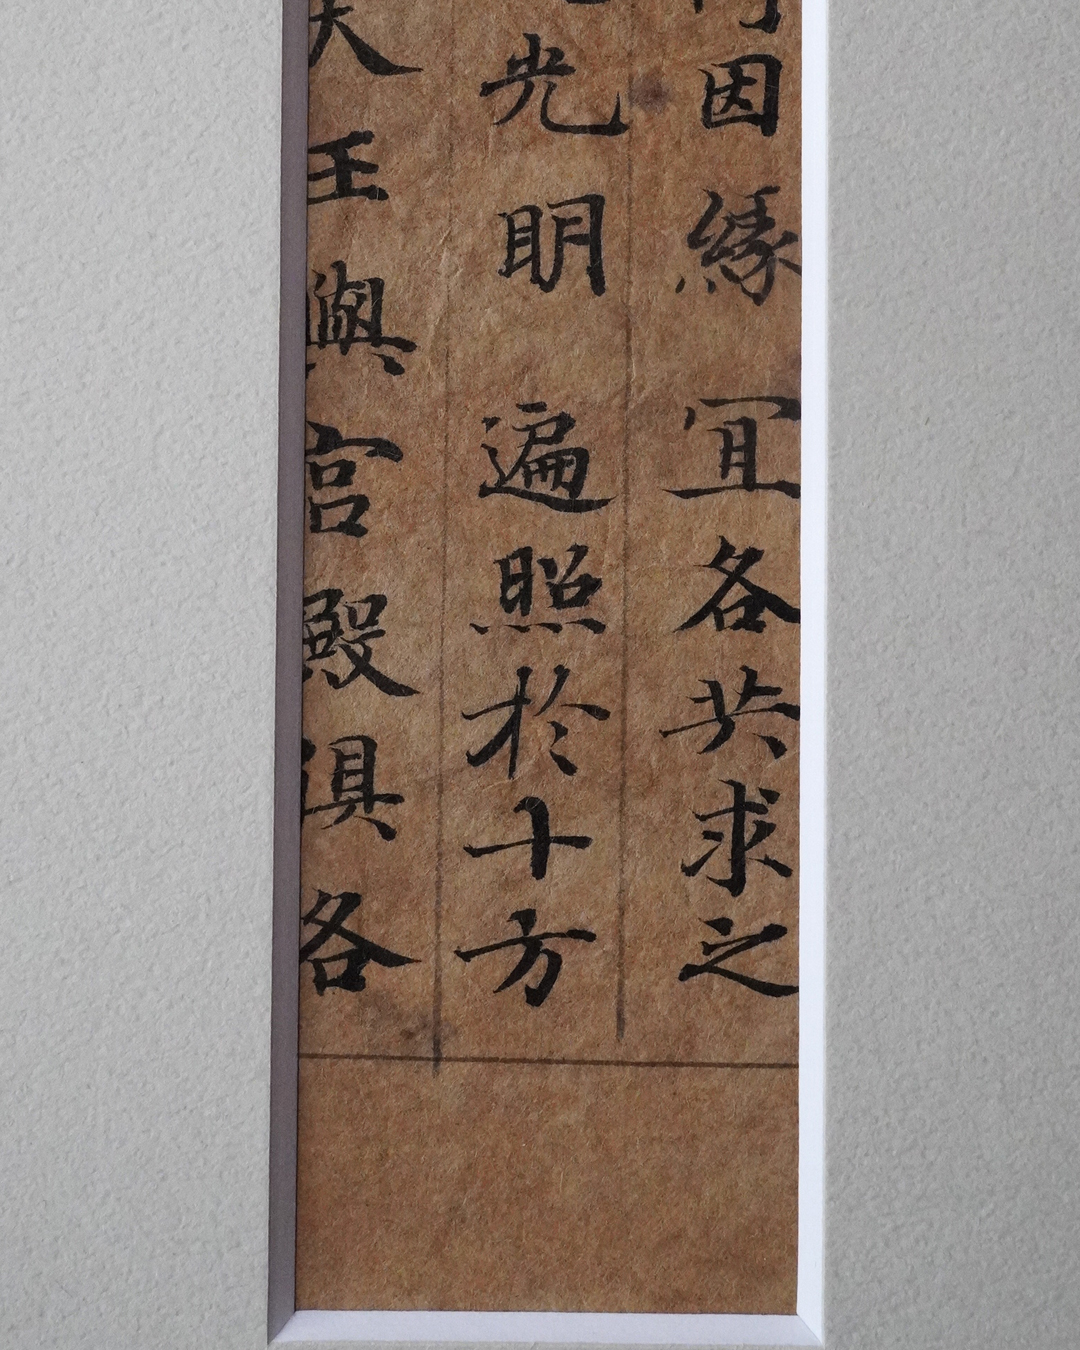 何因緣宜各共求之
光明遍照於十方
天王與宮殿俱各